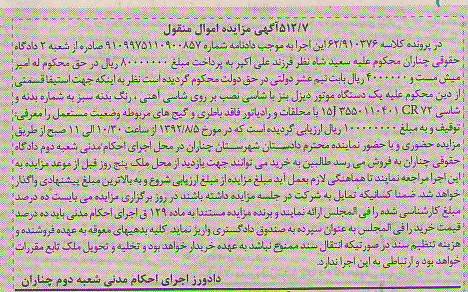 ۵۱۲/۷آگهی مزایده اموال منقول
در پرونده کلاسه ۶۲/۹۱۰۳۷۶ این اجرا به موجب دادنامه شماره ۹۱۰۹۹۷۵۱۱۰۹۰۰۸۵۷ صادره از شعبه ۲ دادگاه
حقوقی چناران محکوم علیه سعید شاه نظر فرزند علی اکبر به پرداخت مبلغ ۸۰۰۰۰۰۰۰ ریال در حق محکوم له امیر
میش مست و ۴۰۰۰۰۰۰ ریال بابت نیم عشر دولتی در حق دولت محکوم گردیده است نظر به اینکه جهت استیفا قسمتی
از دین محکوم علیه یک دستگاه موتور دیزل بنز با شاسی نصب بر روی شاسی آهنی ، رنگ بدنه سبز به شماره بدنه و
شاسی CR۷۲ ۳۵۵۰۱۱۰۴۰۱ [۱۵ با ملحقات و رادیاتور فاقد باطری و گیج های مربوطه وضعیت مستعمل را معرفی؛
توقیف و به مبلغ ۱۰۰۰۰۰۰۰۰ ریال ارزیابی گردیده است که در مورخ ۱۳۹۲/۸/۵ از ساعت ۱۰/۳۰ الی ۱۱ صبح از طریق
مزایده حضوری و با حضور نماینده محترم دادستان شهرستان چناران در محل اجرای احکام مدنی شعبه دوم دادگاه
حقوقی چناران به فروش می رسد طالبین به خرید می توانند جهت بازدید از محل ملک پنج روز قبل از موعد مزایده به
این اجرا مراجعه نمایند تا هماهنگی لازم بعمل آید مبلغ مزایده از مبلغ ارزیابی شروع و به بالاترین مبلغ پیشنهادی واگذار
خواهد شد. ضمنا کسانیکه تمایل به شرکت در جلسه مزایده داشته باشند در روز برگزاری مزایده می بایست ده درصد
مبلغ کارشناسی شده را فی المجلس ارائه نمایند و برنده مزایده مستندا به ماده ۱۲۹ ق اجرای احکام مدنی باید ده درصد
قیمت خرید را فی المجلس به عنوان سپرده به صندوق دادگستری واریز نماید. کلیه بدهیهای معوقه به عهده فروشنده و
هزینه تنظیم سند در صورتیکه انتقال سند ممنوع نباشد به عهده خریدار خواهد بود و تخلیه و تحویل ملک تابع مقررات
خواهد بود و ارتباطی به این اجرا ندارد.
دادورز اجرای احکام مدنی شعبه دوم چناران